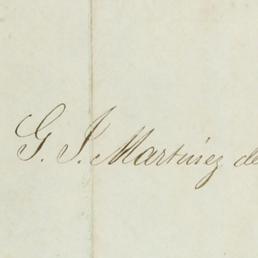 G. J. Martinez de